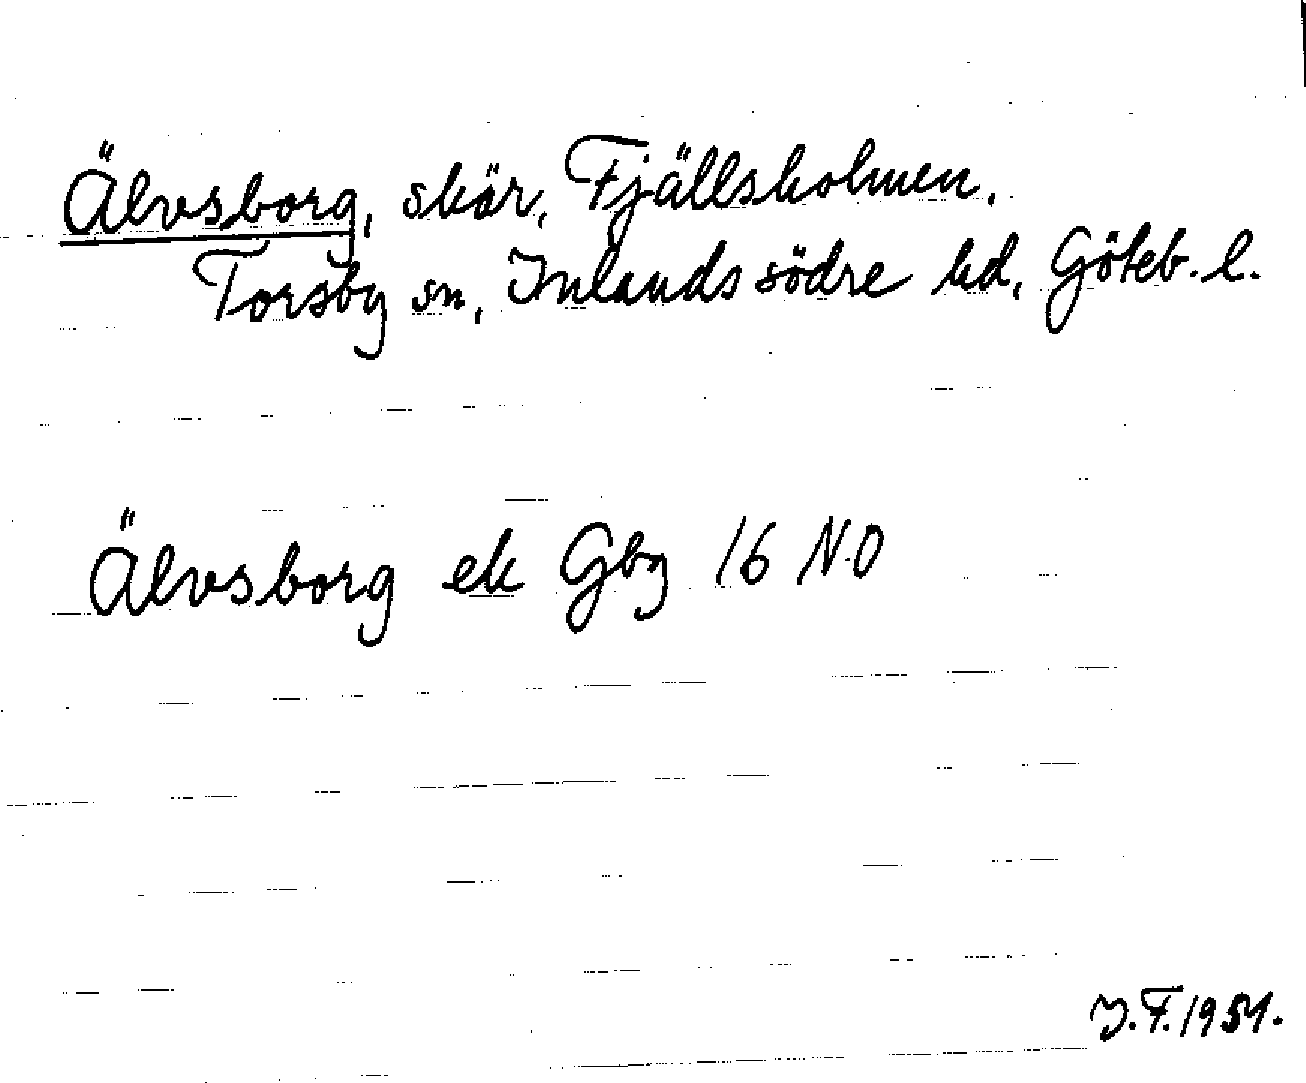 Älvsborg, skär, Fjällsholmen.
Torsby sn, Inlands södre hd, Göteb. l.
Älvsborg ek Gbg 16 NO
J.F. 1951.